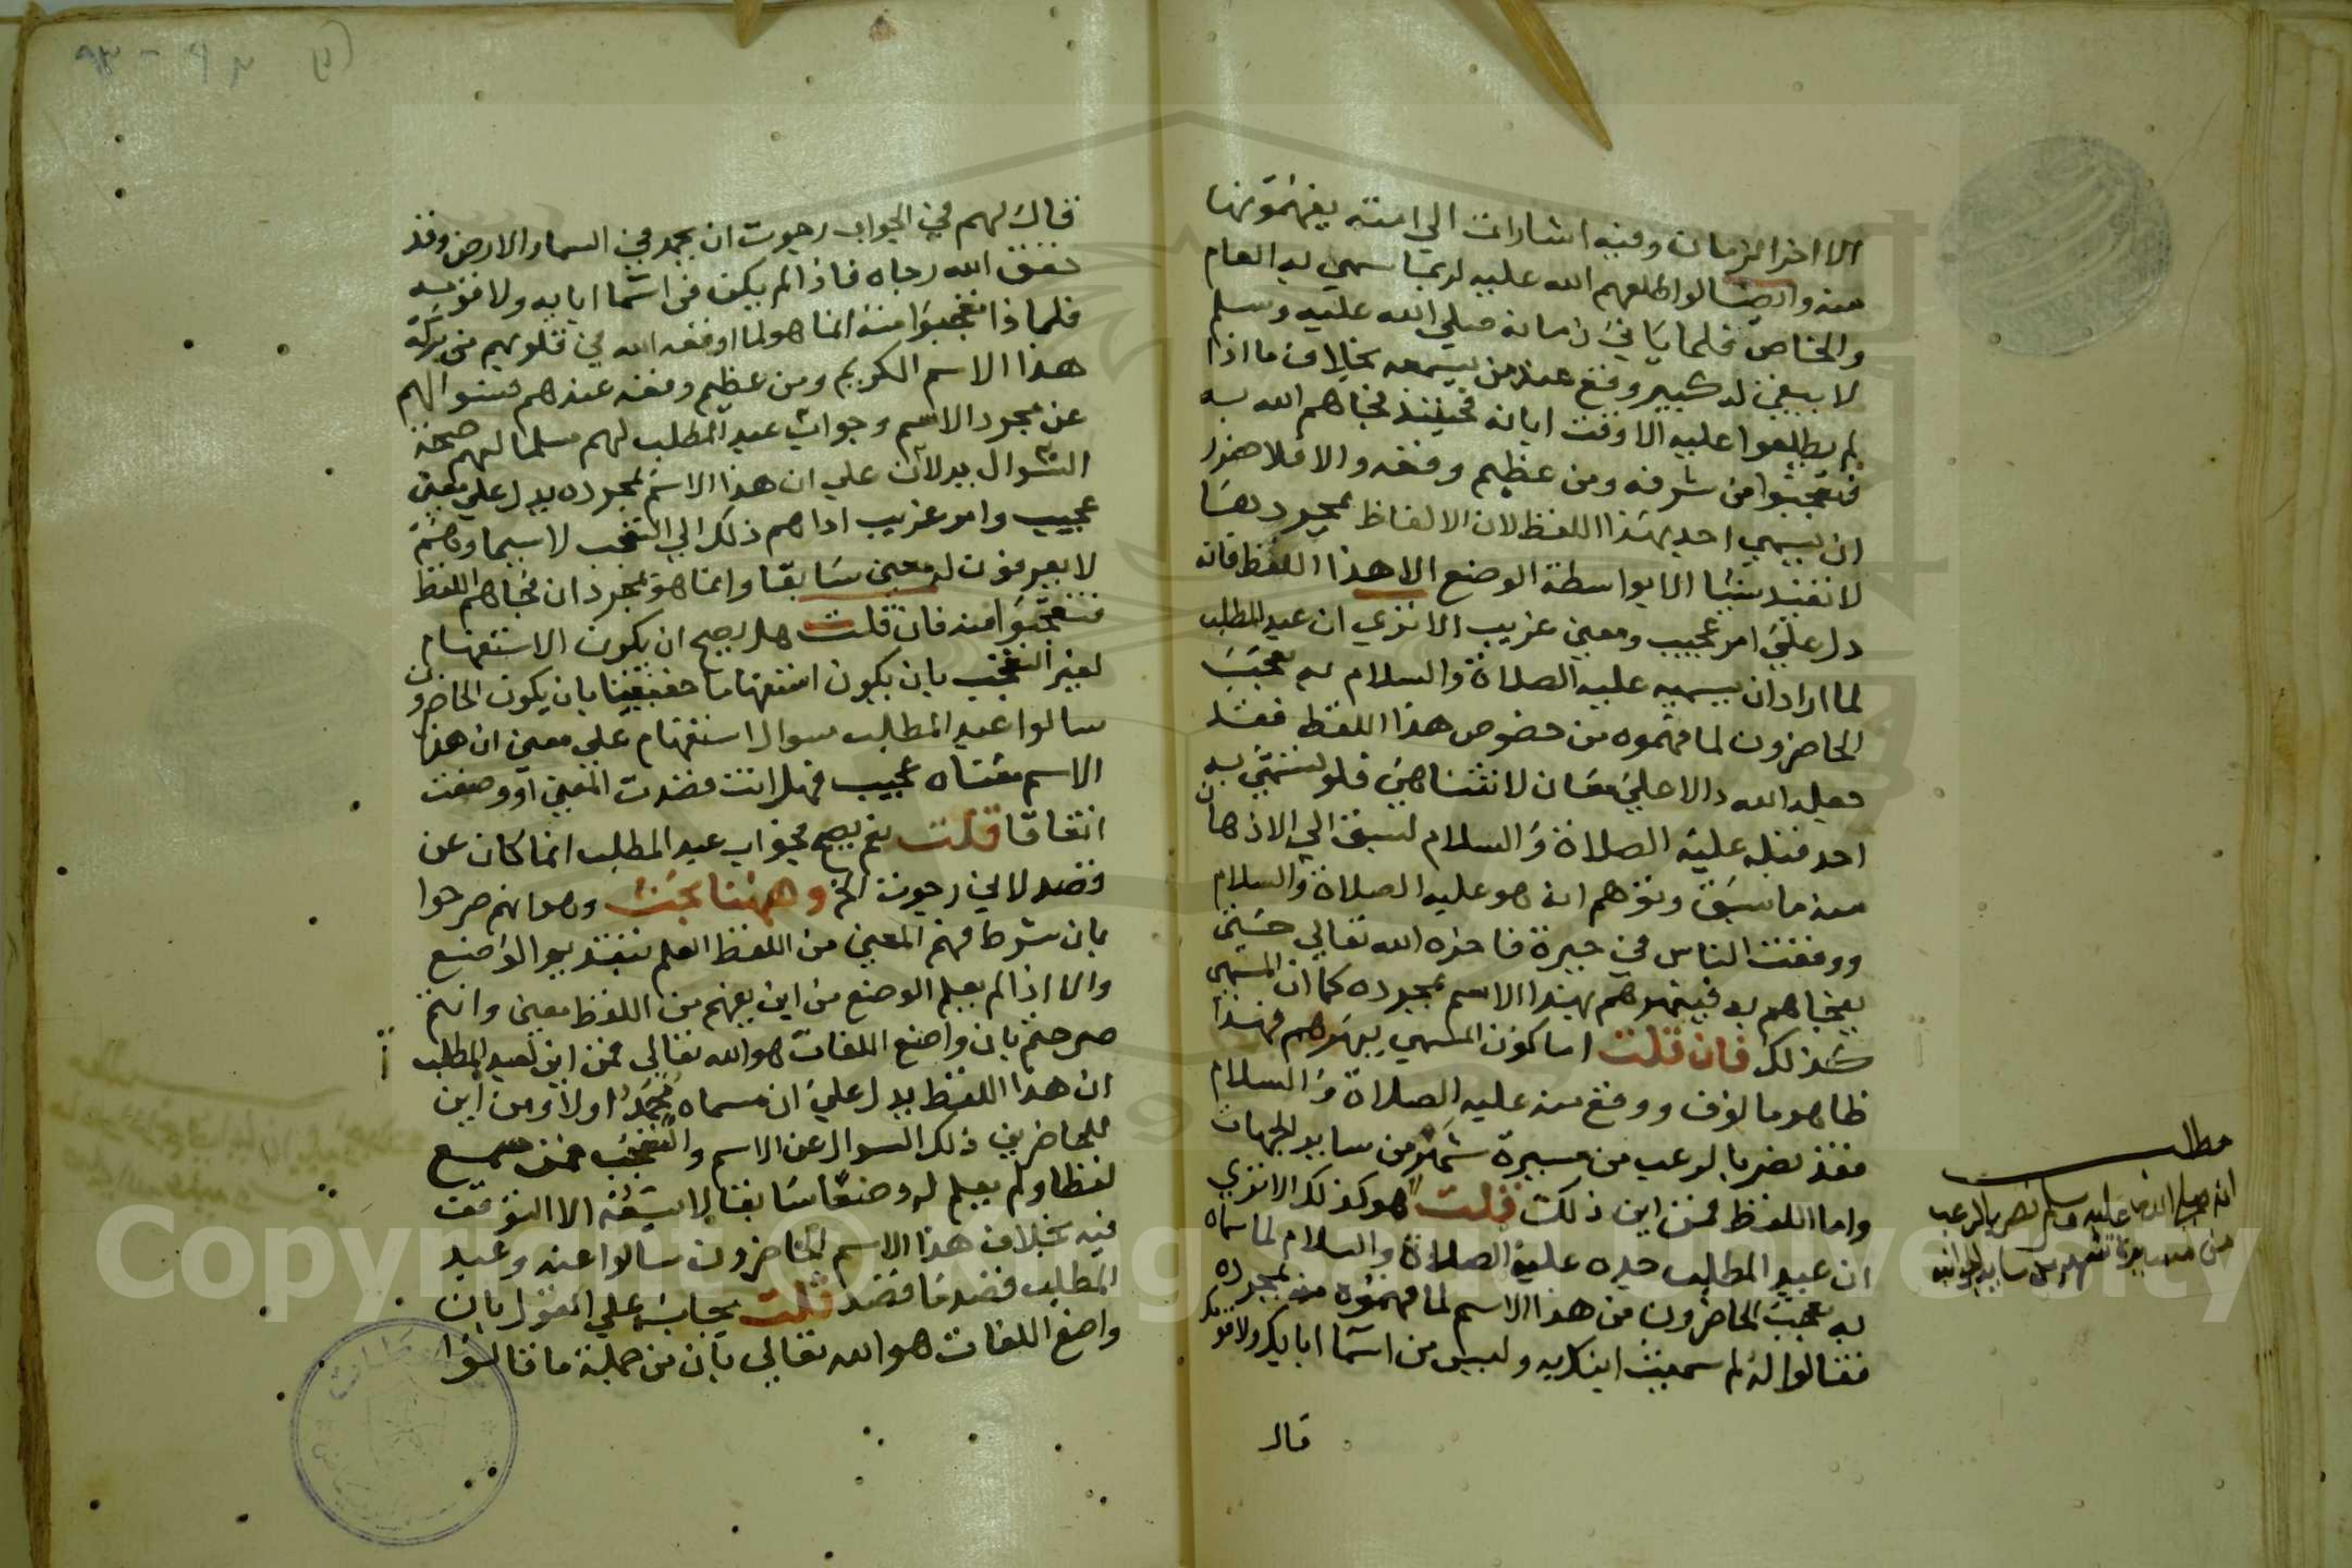 الا اخر الزمان وفيه اشارات الي امته يفهمونها
منه وايضا لو اطلعهم الله عليه لربما سمي به العام
والخاص فلما ياتي زمانه صلي الله عليه وسلم
لا يبقي له كبير وقع عند من يسمعه بخلاف ما اذا
لم يطلعوا عليه الا وقت ابانه فحينئذ فجاهم الله به
فتعجبوا من شرفه ومن عظيم وقعه والا فلا ضرر
ان يسمي احد بهذا اللفظ لان الالفاظ بمجردها
لا تفيد شيئا الا بواسطة الوضع الا هذا اللفظ فانه
دل علي امر عجيب ومعني غريب الا تري ان عبد المطلب
لما اراد ان يسميه عليه الصلاة والسلام به تعجب
الحاضرون لما فهموه من خصوص هذا اللفظ فقد
جعله الله دالا علي معان لا تتناهي فلو تسمي به
احد قبله عليه الصلاة والسلام لسبق الي الاذهان
منه ما سبق وتوهم انه هو عليه الصلاة والسلام
ووقعت الناس في حيرة فاخره الله تعالي حتي
يفجاهم به فيبهرهم بهذا الاسم بمجرده كما ان المسمي
كذلك فان قلت اما كون المسمي يبهرهم فهذا
ظاهر مالوف ووقع منه عليه الصلاة والسلام
فقد نصر بالرعب من مسيرة شهر من ساير الجهات
واما اللفظ فمن اين ذلك قلت هو كذلك الا تري
ان عبد المطلب جده عليه الصلاة والسلام لما سماه
به تعجب الحاضرون من هذا الاسم لما فهموه من مجرده
فقالوا له لم سميت ابنك به وليس من اسما ابايك ولا قومك
قال
مطلب
انه صلي الله عليه وسلم نصر بالرعب
من مسيرة شهر من ساير الجوانب
قال لهم في الجواب رجوت ان يحمد في السما والارض وقد
حقق الله رجاه فاذا لم يكن من اسما ابايه ولا قومه
فلماذا تعجبوا منه انما هو لما اوقعه الله في قلوبهم من بركة
هذا الاسم الكريم ومن عظيم وقعه عندهم فسوالهم
عن مجرد الاسم وجواب عبد المطلب لهم مسلما لهم صحة
السوال يدلان علي ان هذا الاسم بمجرده يدل علي معني
عجيب وامر غريب اداهم ذلك الي التعجب لا سيما وهم
لا يعرفون له معني سابقا وانما هو بمجرد ان فجاهم اللفظ
فتعجبوا منه فان قلت هل يصح ان يكون الاستفهام
لغير التعجب بان يكون استفهاما حقيقيا بان يكون الحاضرون
سالوا عبد المطلب سوال استفهام علي معني ان هذا
الاسم معناه عجيب فهل انت قصدت المعني او وضعت
اتفاقا قلت نعم يصح فجواب عبد المطلب انما كان عن
قصد لاني رجوت الخ وههنا بحث وهو انهم صرحوا
بان شرط فهم المعني من اللفظ العلم بقصد الواضع
والا اذا لم يعلم الوضع من اين يفهم من اللفظ معني وانتم
صرحتم بان واضع اللغات هو الله تعالي فمن اين لعبد المطلب
ان هذا اللفظ يدل علي ان مسماه محمد اولا ومن اين
للحاضرين ذلك السوال عن الاسم والتعجب فمن سمع
لفظا ولم يعلم له وضعا سابقا لا يسعه الا التوقف
فيه بخلاف هذا الاسم فالحاضرون سالوا عنه وعبد
المطلب قصد ما قصد قلت يجاب علي القول بان
واضع اللغات هو الله تعالي بان من جملة ما قالوا
Copyright © King Saud University